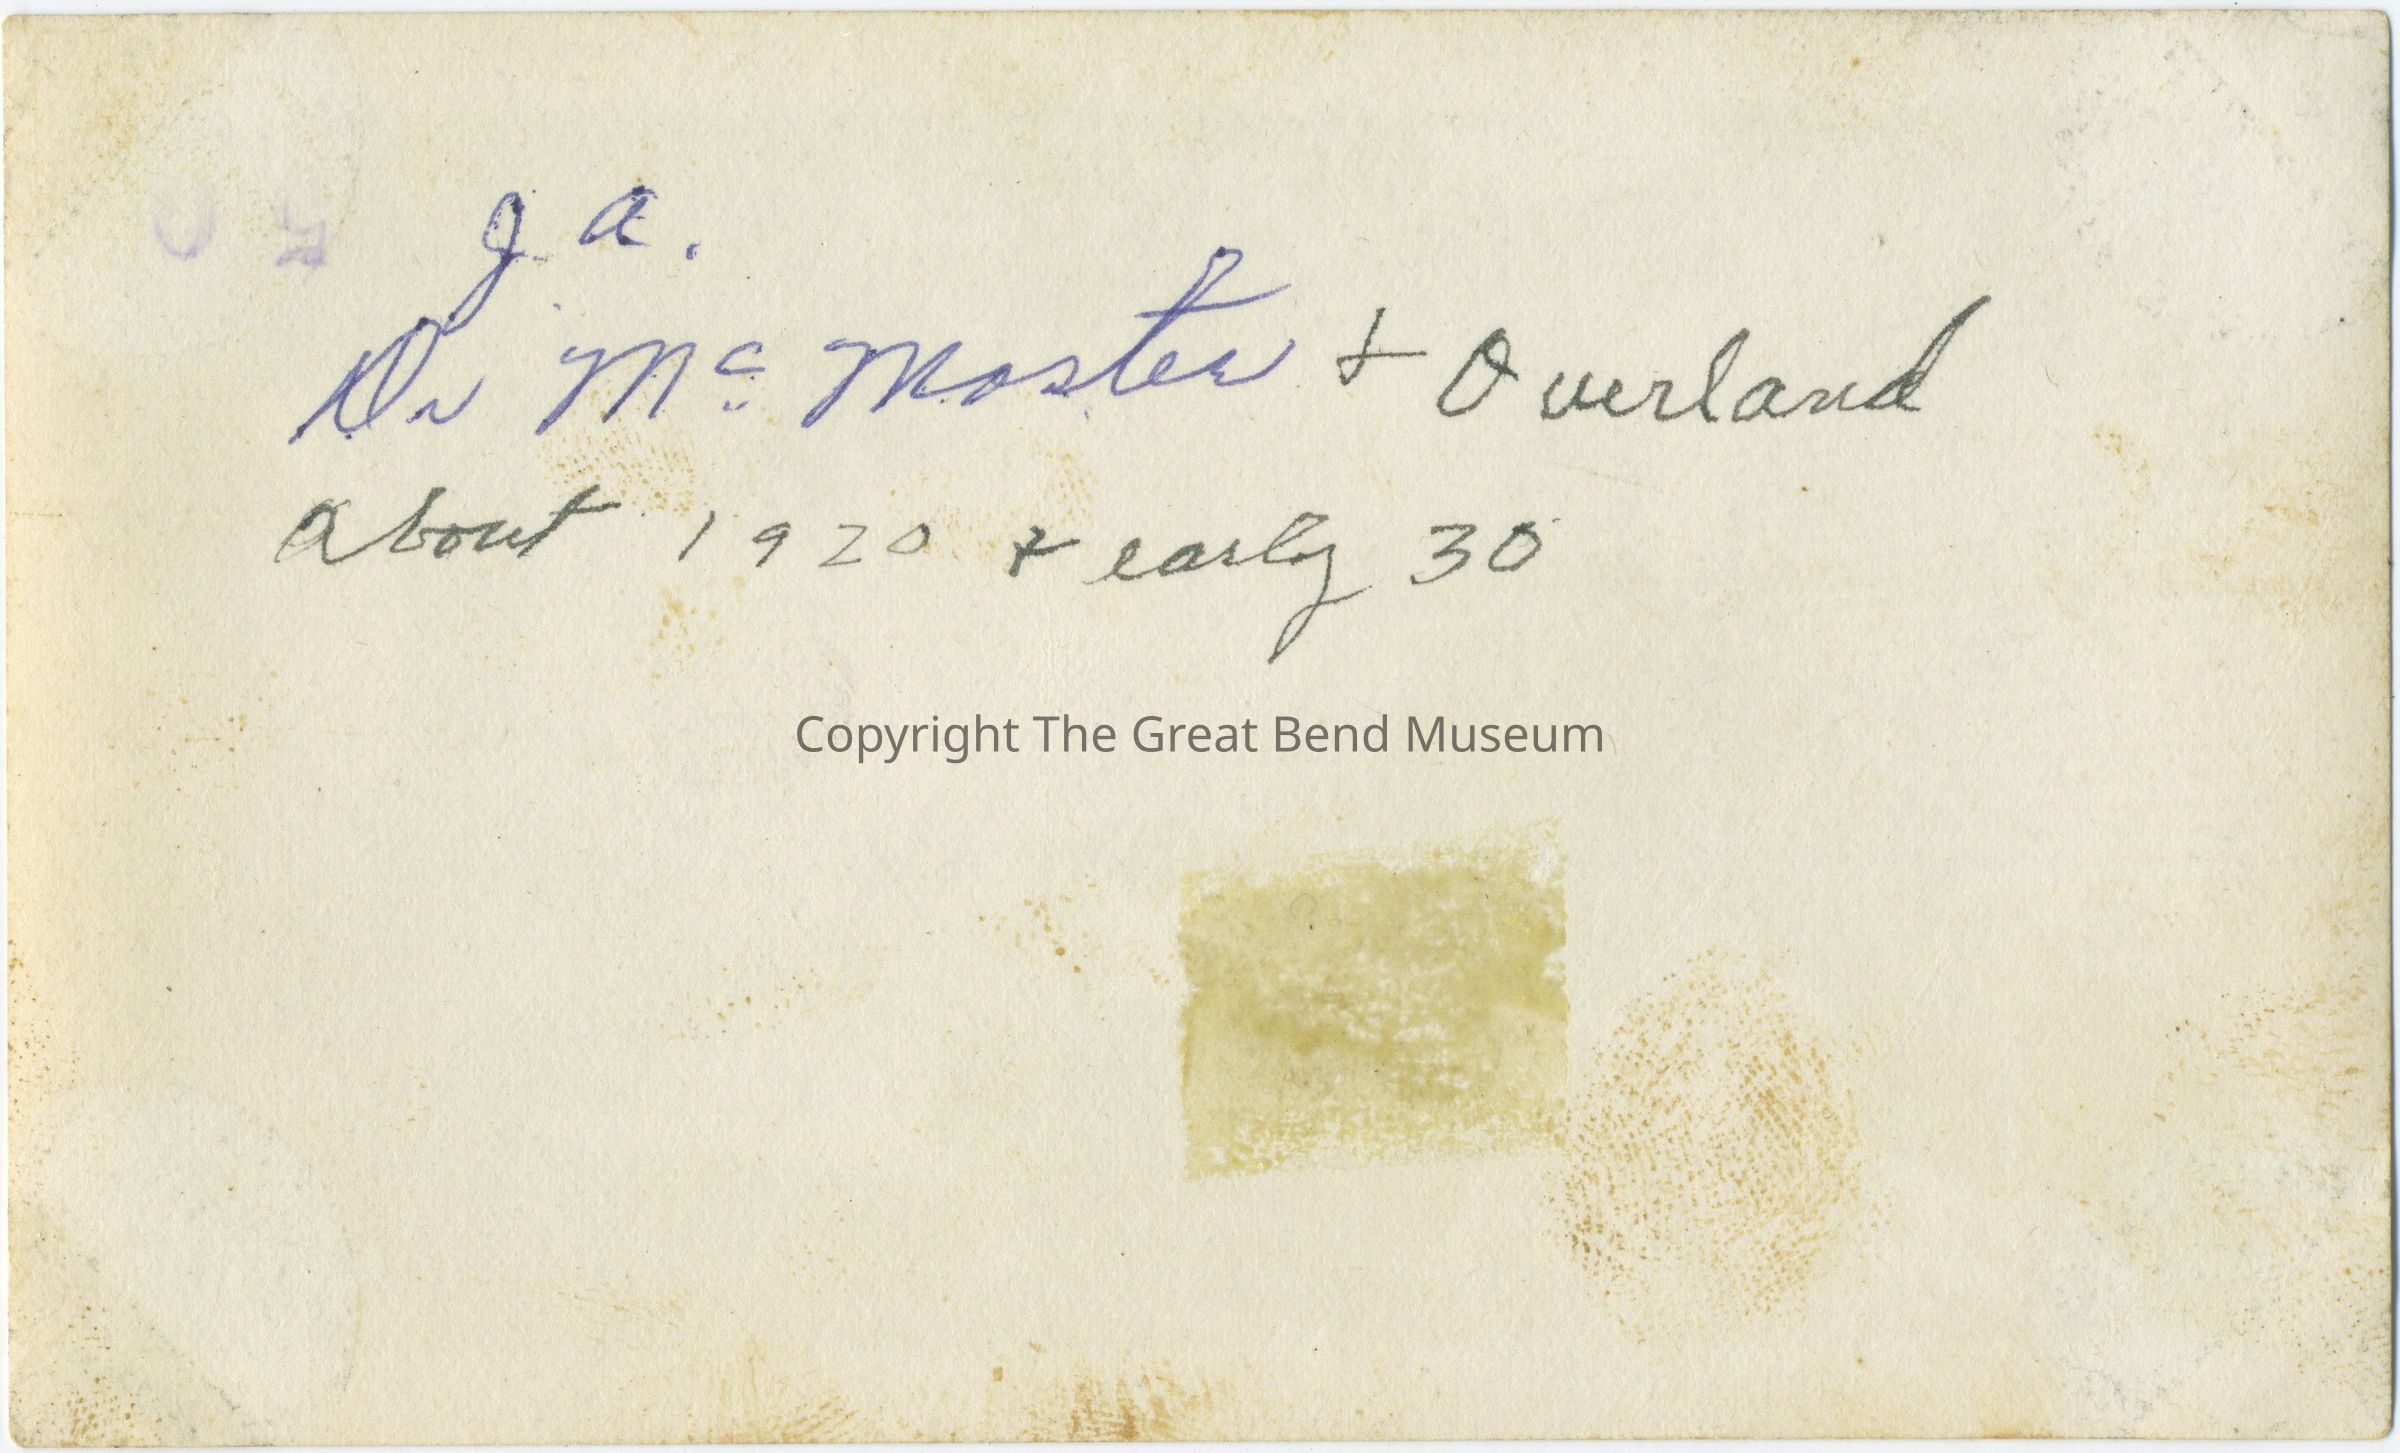 J. A.
Dr McMaster + Overland
About 1920 + early 30
Copyright The Great Bend Museum